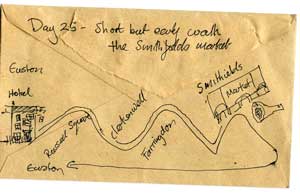 Day 25 - Short but early walk
the Smithfields market
Euston
Hotel
Russell Square
Clerkenwell
Farringdon
Smithfields
Market
Euston